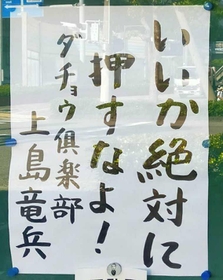 いいか絶対に
押すなよ!
ダチョウ倶楽部
上島竜兵